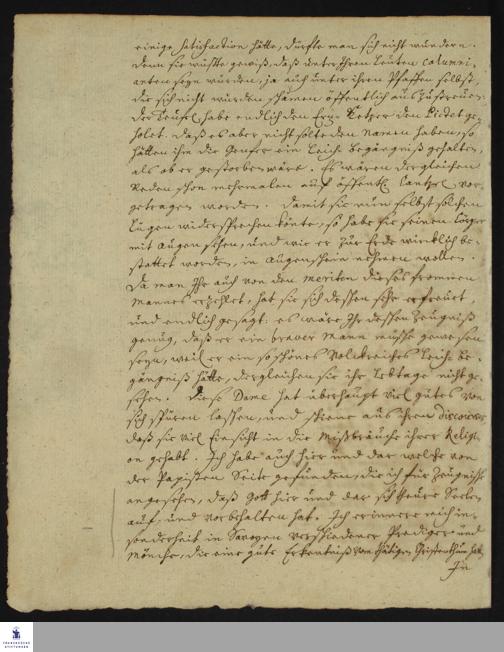 einige satisfaction hätte, dürfte man sich nicht wundern.
denn sie wüßte gewiß, daß unter Ihren Leuten Calumni-
anten seyn würden, ja auch unter ihren Pfaffen selbst,
die sich nicht würden schämen öffentlich auszustreuen:
der Teufel habe endlich den Ertz-Ketzer den Pictet ge-
holet. Daß es aber nicht solte den Namen haben, so
hätten ihm die Genfer ein Leich-Begängniß gehalten,
als ob er gestorben wäre. Es wären dergleichen
Reden schon mehrmalen auf öffentl. Cantzel vor-
getragen worden. Damit sie nun selbst solchen
Lügen widersprechen könte, so habe sie seinen Cörper
mit Augen sehen, und wie er zur Erde wircklich be-
stattet worden, in Augenschein nehmen wollen.
Da man Ihr auch von den meriten dieses frommen
Mannes erzehlet, hat sie sich dessen sehr erfreuet,
und endlich gesagt: es wäre Ihr dessen Zeugniß
genug, daß er ein braver Mann müsse gewesen
seyn, weil er ein so schönes Volckreiches Leich-Be-
gängniß hätte, dergleichen sie ihr Lebtage nicht ge-
sehen. Diese Dame hat überhaupt viel gutes von
sich spüren lassen, und schiene aus ihren discoursen,
daß sie viel Einsicht in die Mißbräuche ihrer Religi-
on gehabt. Ich habe auch hier und dar welche von
der Papisten Seite gefunden, die ich für Zeugniße
angesehen, daß Gott hier und dar sich theure Seelen
auf und vorbehalten hat. Ich erinnere mich in-
sonderheit in Savoyen verschiedener Prediger und
Mönche, die eine gute Erkentniß vom thätigen Christenthum hatten.
In
FRANCKESCHE
STIFTUNGEN